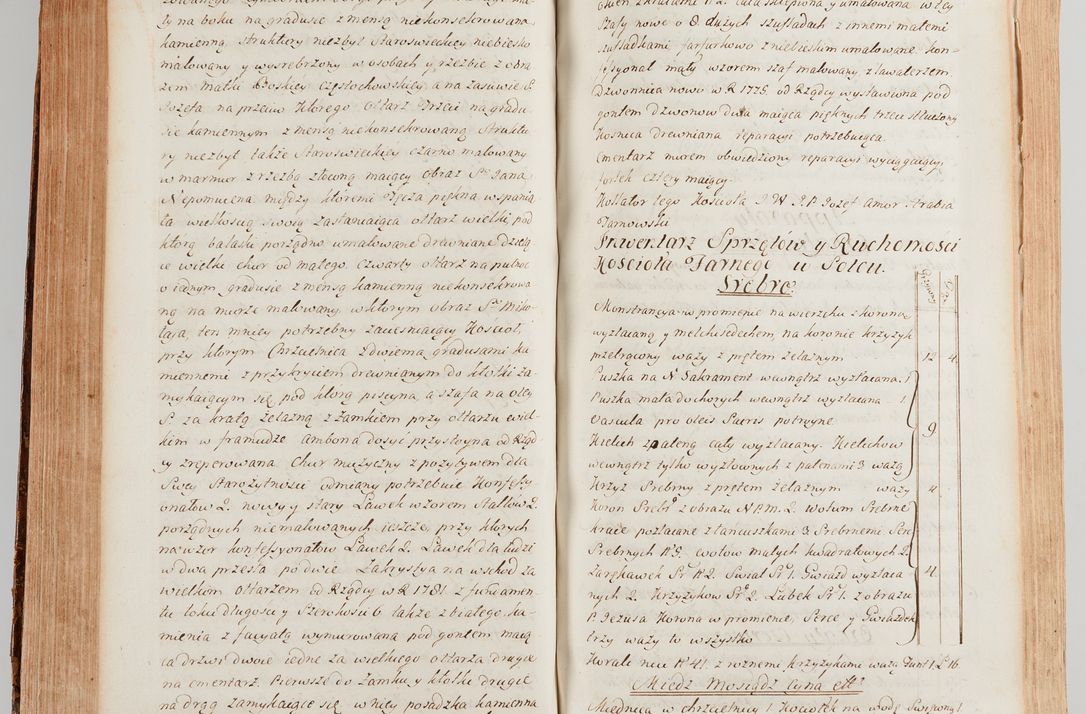 ty na boku na gradusie z mensą niekonsekrowaną
kamienną, struktury niezbyt Staroswieckiey niebiesko
malowany y wysrebrzony w osobach y rzezbie z obra
zem Matki Boskiey częstochowskiey, a na zasuwie S.
Jozefa, na przeciw ktorego ołtarz trzeci na gradu
sie kamiennym z mensą niekonsekrowaną Struktu
ry niezbyt także Staroswieckiey czarno malowany
w marmur z rzezbą złoconą maiący obraz Sgo Jana
Nepomucena między ktoremi Tęcza piękna wspania
ła wielkoscią swoią zastawiaiąca ołtarz wielki pod
ktorą balaski porządno umalowane drewniane dzielą
ce wielki chor od małego. czwarty ołtarz na pułnoc
o iednym gradusie z mensą kamienną niekonsekrowa
ną na murze malowany, w ktorym obraz Sgo Miko
łaja, ten mniey potrzebny zaciesniaiący Kosciół,
przy ktorym Chrzcielnica z dwiema gradusami ka
miennemi z przykryciem drewnianym do kłotki za
mykaiącym się pod ktorą piscyna, a szafa na oley
S. za kratą zelazną z zamkiem przy ołtarzu wiel
kim w framudze ambona dosyć przystoyna od Rząd
cy zreperowana. Chor muzyczny z pozytywem dla
Swey Starożytnosci odmiany potrzebuie Konfess
onałow 2. nowy y stary Ławek wzorem Stallow 2.
porządnych niemalowanych ieszcze, przy ktorych
na wzor konfessyonałow Ławek 2. Ławek dla ludzi
w dwa przesła po dwie. Zakrystya na wschod za
wielkim ołtarzem od Rządcy w R. 1781 z fundamen
tu łokci długosci 7 Szerokosci 6 także z białego ka
mienia z facyatą wymurowana pod gontem maią
ca drzwi dwoie iedne za wielkiego ołtarza drugie
na cmentarz. Pierwsze do zamku y kłotki drugie
na drąg zamykaiące się, w niey posadzka kamienna
szafy nowe o 8 dużych szufladach z innemi małemi
szufladkami farfurkowo z niebieskim umalowane. kon
fessyonał mały wzorem szaf malowany z lawaterzem
Dzwonnica nowa w R. 1775 od Rządcy wystawiona pod
gontem dzwonow dwa maiąca pięknych trzeci stłuczony
Kosnica drewniana reparacyi potrzebuiąca.
Cmentarz murem obwiedziony reparacyi wyciągaiący,
fortek cztery maiący.
Kollator tego Kościoła J. W. J. P. Jozef Amor Hrabia
Tarnowski
Inwentarz Sprzętów y Ruchomości
Kościoła Farnego w Połcu.
Srebro.
Monstrancya w promienie na wierzchu z koroną
wyzłacaną y melchisedechem, na koronie krzyżyk
przetrącony waży z prętem żelaznym 12 4
Puszka na N. Sakrament wewnątrz wyzłacana. 1
Puszka mała do chorych wewnątrz wyzłacana - 1
Vascula pro oleis Sacris potroyne
Kielich z pateną cały wyzłacany. Kielichow 9
wewnątrz tylko wyzłoconych z patenami 3 ważą
Krzyż Srebrny z prętem żelaznym waży 4
Koron Srebr. z obrazu N.P.M. 2. Wotum Srebrne
kraie pozłacane z łańcuszkami 3. Srebrnemi
Srebrnych 2.
Zarękawek Sr. 2. Swiat Sr. 1. Gwiazd wyzłaca 4
nych 2. Krzyżykow Sr. 2. Ząbek Sr. 1. z obrazu
P. Jezusa Korona w promienie, Serce y Gwiazdek
trzy waży to wszystko
Korale nici N. 41. z roznemi krzyżykami ważą funt 1 16
Miedz Mosiądz Cyna etc.
Miednica w chrzcielnicy 1. Kociołek na wodę Swięconą 1